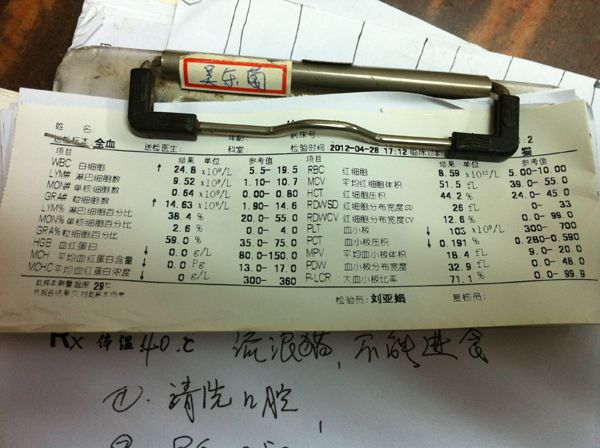 吴乐菌
姓 名:
送检标本: 全血 送检医生: 科室: 年龄: 病床号: 检验时间 2012-04-28 17:12 临床诊断 猫 :2
项目 结果 单位 参考值 项目 结果 单位 参考值
WBC 白细胞 ↑ 24.8 x10⁹/L 5.5- 19.5 RBC 红细胞 8.59 x10¹²/L 5.00-10.00
LYM# 淋巴细胞数 9.52 x10⁹/L 1.10- 10.7 MCV 平均红细胞体积 51.5 fL 39.0- 55.0
MON# 单核细胞数 0.64 x10⁹/L 0.00- 0.80 HCT 红细胞压积 44.2 % 24.0- 45.0
GRA# 粒细胞数 ↑ 14.63 x10⁹/L 1.90- 14.6 RDWSD 红细胞分布宽度SD 26 fL 0- 33
LYM% 淋巴细胞百分比 38.4 % 20.0- 55.0 RDWCV 红细胞分布宽度CV 12.6 % 0.0- 99.9
MON% 单核细胞百分比 2.6 % 0.0- 4.0 PLT 血小板 ↓ 103 x10⁹/L 300- 700
GRA% 粒细胞百分比 59.0 % 35.0- 75.0 PCT 血小板压积 ↓ 0.191 % 0.280-0.590
HGB 血红蛋白 ↓ 0.0 g/L 80.0-150.0 MPV 平均血小板体积 18.4 fL 9.0- 20.0
MCH 平均血红蛋白含量 ↓ 0.0 Pg 13.0- 17.0 PDW 血小板分布宽度 32.9 fL 0.0- 48.0
MCHC 平均血红蛋白浓度 ↓ 0 g/L 300- 360 P-LCR 大血小板比率 71.1 % 0.0- 99.9
此样本测量温度 29℃
此报告结果仅对此标本负责 检验员: 刘亚娟 复核员:
Rx 体温40.c 流浪猫,不能进食
①. 清洗口腔